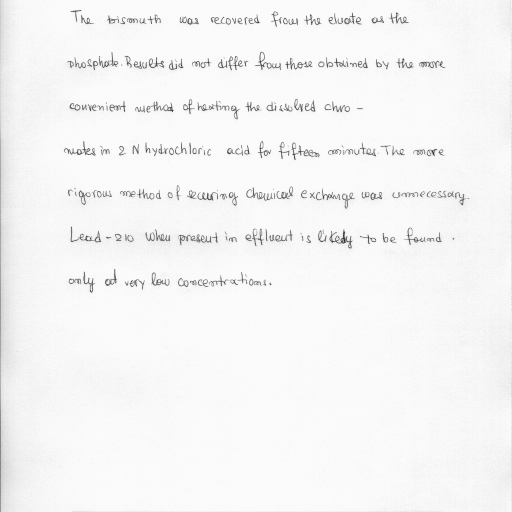 The bismuth was recovered from the eluate as the
phosphate. Results did not differ from those obtained by the more
convenient method of heating the dissolved chro-
mates in 2 N hydrochloric acid for fifteen minutes. The more
rigorous method of securing chemical exchange was unnecessary.
Lead-210 when present in effluent is likely to be found.
only at very low concentrations.